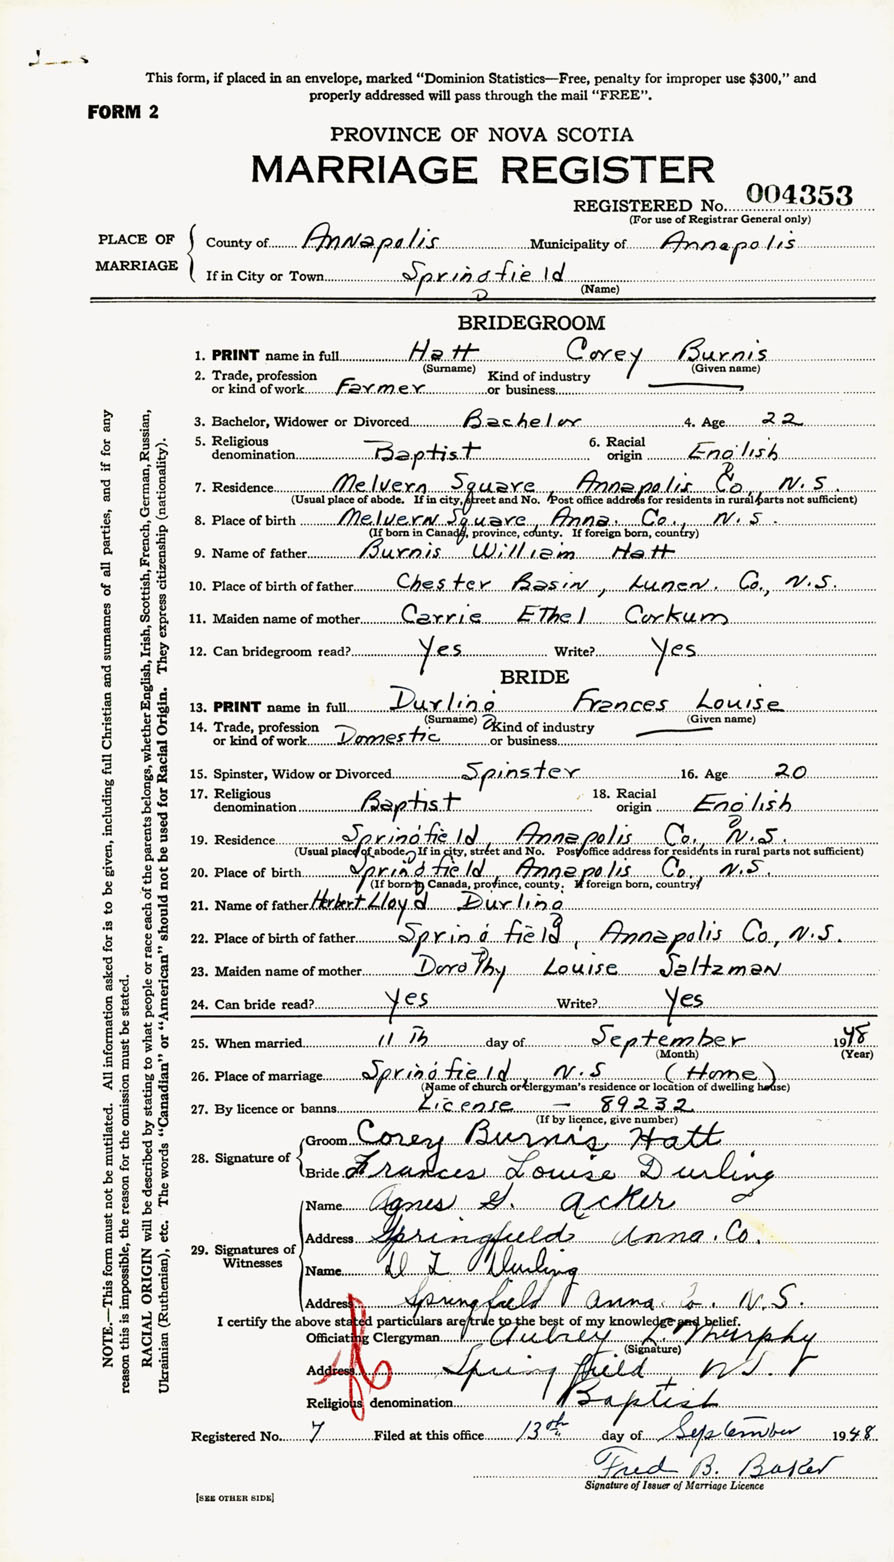 This form, if placed in an envelope, marked “Dominion Statistics—Free, penalty for improper use $300,” and
properly addressed will pass through the mail “FREE”.
FORM 2
PROVINCE OF NOVA SCOTIA
MARRIAGE REGISTER
REGISTERED No. 004353
(For use of Registrar General only)
PLACE OF MARRIAGE
County of Annapolis Municipality of Annapolis
If in City or Town Springfield
(Name)
BRIDEGROOM
1. PRINT name in full Hatt Corey Burnis
(Surname) (Given name)
2. Trade, profession or kind of work Farmer Kind of industry or business
3. Bachelor, Widower or Divorced Bachelor 4. Age 22
5. Religious denomination Baptist 6. Racial origin English
7. Residence Melvern Square, Annapolis Co., N.S.
(Usual place of abode. If in city, street and No. Post office address for residents in rural parts not sufficient)
8. Place of birth Melvern Square, Anna. Co., N.S.
(If born in Canada, province, county. If foreign born, country)
9. Name of father Burnis William Hatt
10. Place of birth of father Chester Basin, Lunen. Co., N.S.
11. Maiden name of mother Carrie Ethel Corkum
12. Can bridegroom read? Yes Write? Yes
BRIDE
13. PRINT name in full Durling Frances Louise
(Surname) (Given name)
14. Trade, profession or kind of work Domestic Kind of industry or business
15. Spinster, Widow or Divorced Spinster 16. Age 20
17. Religious denomination Baptist 18. Racial origin English
19. Residence Springfield, Annapolis Co., N.S.
(Usual place of abode. If in city, street and No. Post office address for residents in rural parts not sufficient)
20. Place of birth Springfield, Annapolis Co., N.S.
(If born in Canada, province, county. If foreign born, country)
21. Name of father Herbert Lloyd Durling
22. Place of birth of father Springfield, Annapolis Co., N.S.
23. Maiden name of mother Dorothy Louise Saltzman
24. Can bride read? Yes Write? Yes
25. When married 11th day of September 1948
(Month) (Year)
26. Place of marriage Springfield N.S (Home)
(Name of church or clergyman's residence or location of dwelling house)
27. By licence or banns License - 89232
(If by licence, give number)
28. Signature of
Groom Corey Burnis Hatt
Bride Frances Louise Durling
29. Signatures of Witnesses
Name Agnes G. Acker
Address Springfield Anna. Co.
Name Durling
Address Springfield Anna. Co. N.S.
I certify the above stated particulars are true to the best of my knowledge and belief.
Officiating Clergyman Aubrey L. Murphy
(Signature)
Address Springfield N.S.
Religious denomination Baptist
Registered No. 7 Filed at this office 13th day of September 1948
Fred B. Baker
Signature of Issuer of Marriage Licence
[SEE OTHER SIDE]
NOTE.—This form must not be mutilated. All information asked for is to be given, including full Christian and surnames of all parties, and if for any
reason this is impossible, the reason for the omission must be stated.
RACIAL ORIGIN will be described by stating to what people or race each of the parents belongs, whether English, Irish, Scottish, French, German, Russian,
Ukrainian (Ruthenian), etc. The words “Canadian” or “American” should not be used for Racial Origin. They express citizenship (nationality).